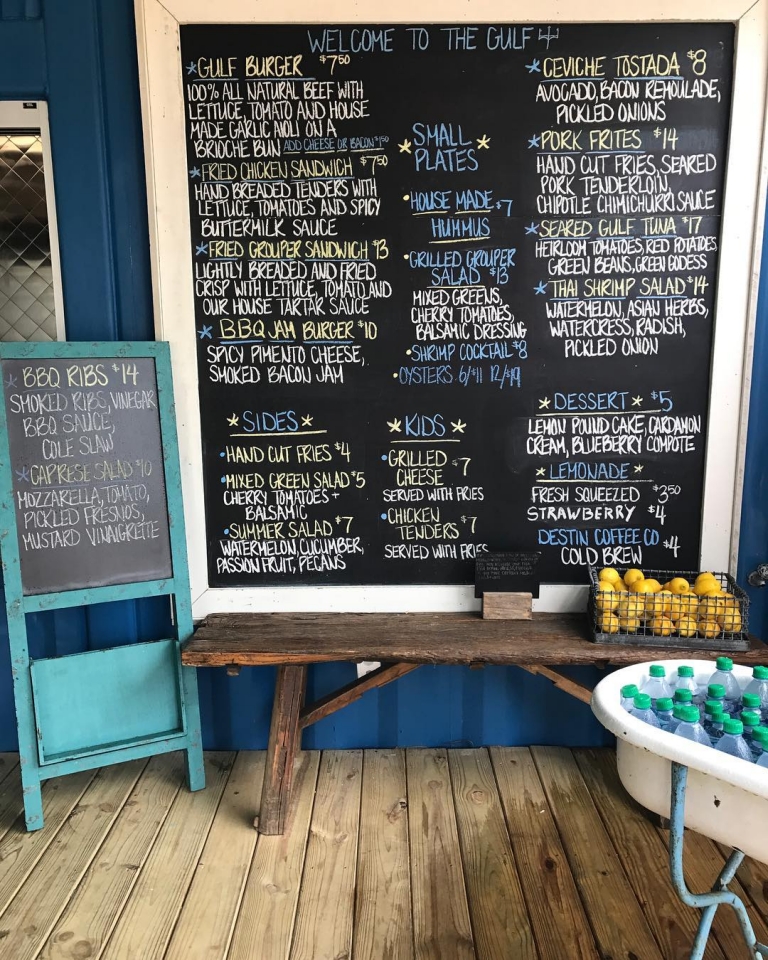 WELCOME TO THE GULF
GULF BURGER $7.50
100% ALL NATURAL BEEF WITH
LETTUCE, TOMATO AND HOUSE
MADE GARLIC AIOLI ON A
BRIOCHE BUN ADD CHEESE OR BACON $1.50
FRIED CHICKEN SANDWICH $7.50
HAND BREADED TENDERS WITH
LETTUCE, TOMATOES AND SPICY
BUTTERMILK SAUCE
FRIED GROUPER SANDWICH $13
LIGHTLY BREADED AND FRIED
CRISP WITH LETTUCE, TOMATO AND
OUR HOUSE TARTAR SAUCE
BBQ JAM BURGER $10
SPICY PIMENTO CHEESE,
SMOKED BACON JAM
SIDES
HAND CUT FRIES $4
MIXED GREEN SALAD $5
CHERRY TOMATOES +
BALSAMIC
SUMMER SALAD $7
WATERMELON, CUCUMBER,
PASSION FRUIT, PECANS
SMALL
PLATES
HOUSE MADE $7
HUMMUS
GRILLED GROUPER
SALAD $13
MIXED GREENS,
CHERRY TOMATOES,
BALSAMIC DRESSING
SHRIMP COCKTAIL $8
OYSTERS 6/$11 12/$19
KIDS
GRILLED
CHEESE $7
SERVED WITH FRIES
CHICKEN
TENDERS $7
SERVED WITH FRIES
CEVICHE TOSTADA $8
AVOCADO, BACON REMOULADE,
PICKLED ONIONS
PORK FRITES $14
HAND CUT FRIES, SEARED
PORK TENDERLOIN,
CHIPOTLE CHIMICHURRI SAUCE
SEARED GULF TUNA $17
HEIRLOOM TOMATOES, RED POTATOES
GREEN BEANS, GREEN GODESS
THAI SHRIMP SALAD $14
WATERMELON, ASIAN HERBS,
WATERCRESS, RADISH,
PICKLED ONION
DESSERT $5
LEMON POUND CAKE, CARDAMON
CREAM, BLUEBERRY COMPOTE
LEMONADE
FRESH SQUEEZED $3.50
STRAWBERRY $4
DESTIN COFFEE CO
COLD BREW $4
BBQ RIBS $14
SMOKED RIBS, VINEGAR
BBQ SAUCE,
COLE SLAW
CAPRESE SALAD $10
MOZZARELLA, TOMATO,
PICKLED FRESNOS,
MUSTARD VINAIGRETTE